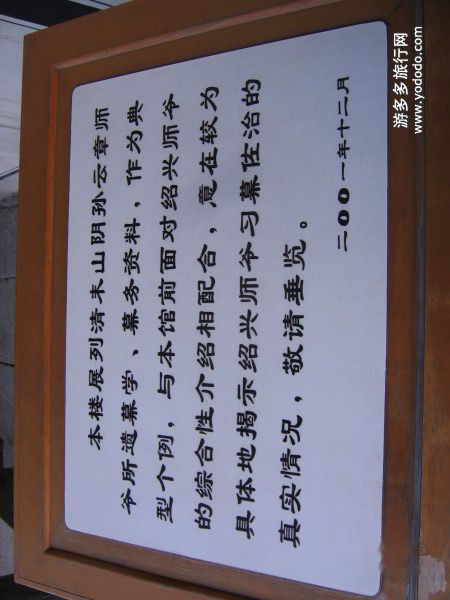 本楼展列清末山阴孙云章师
爷所遗幕学、幕务资料，作为典
型个例，与本馆前面对绍兴师爷
的综合性介绍相配合，意在较为
具体地揭示绍兴师爷习幕佐治的
真实情况，敬请垂览。
二〇〇一年十二月
游多多旅行网
www.yododo.com